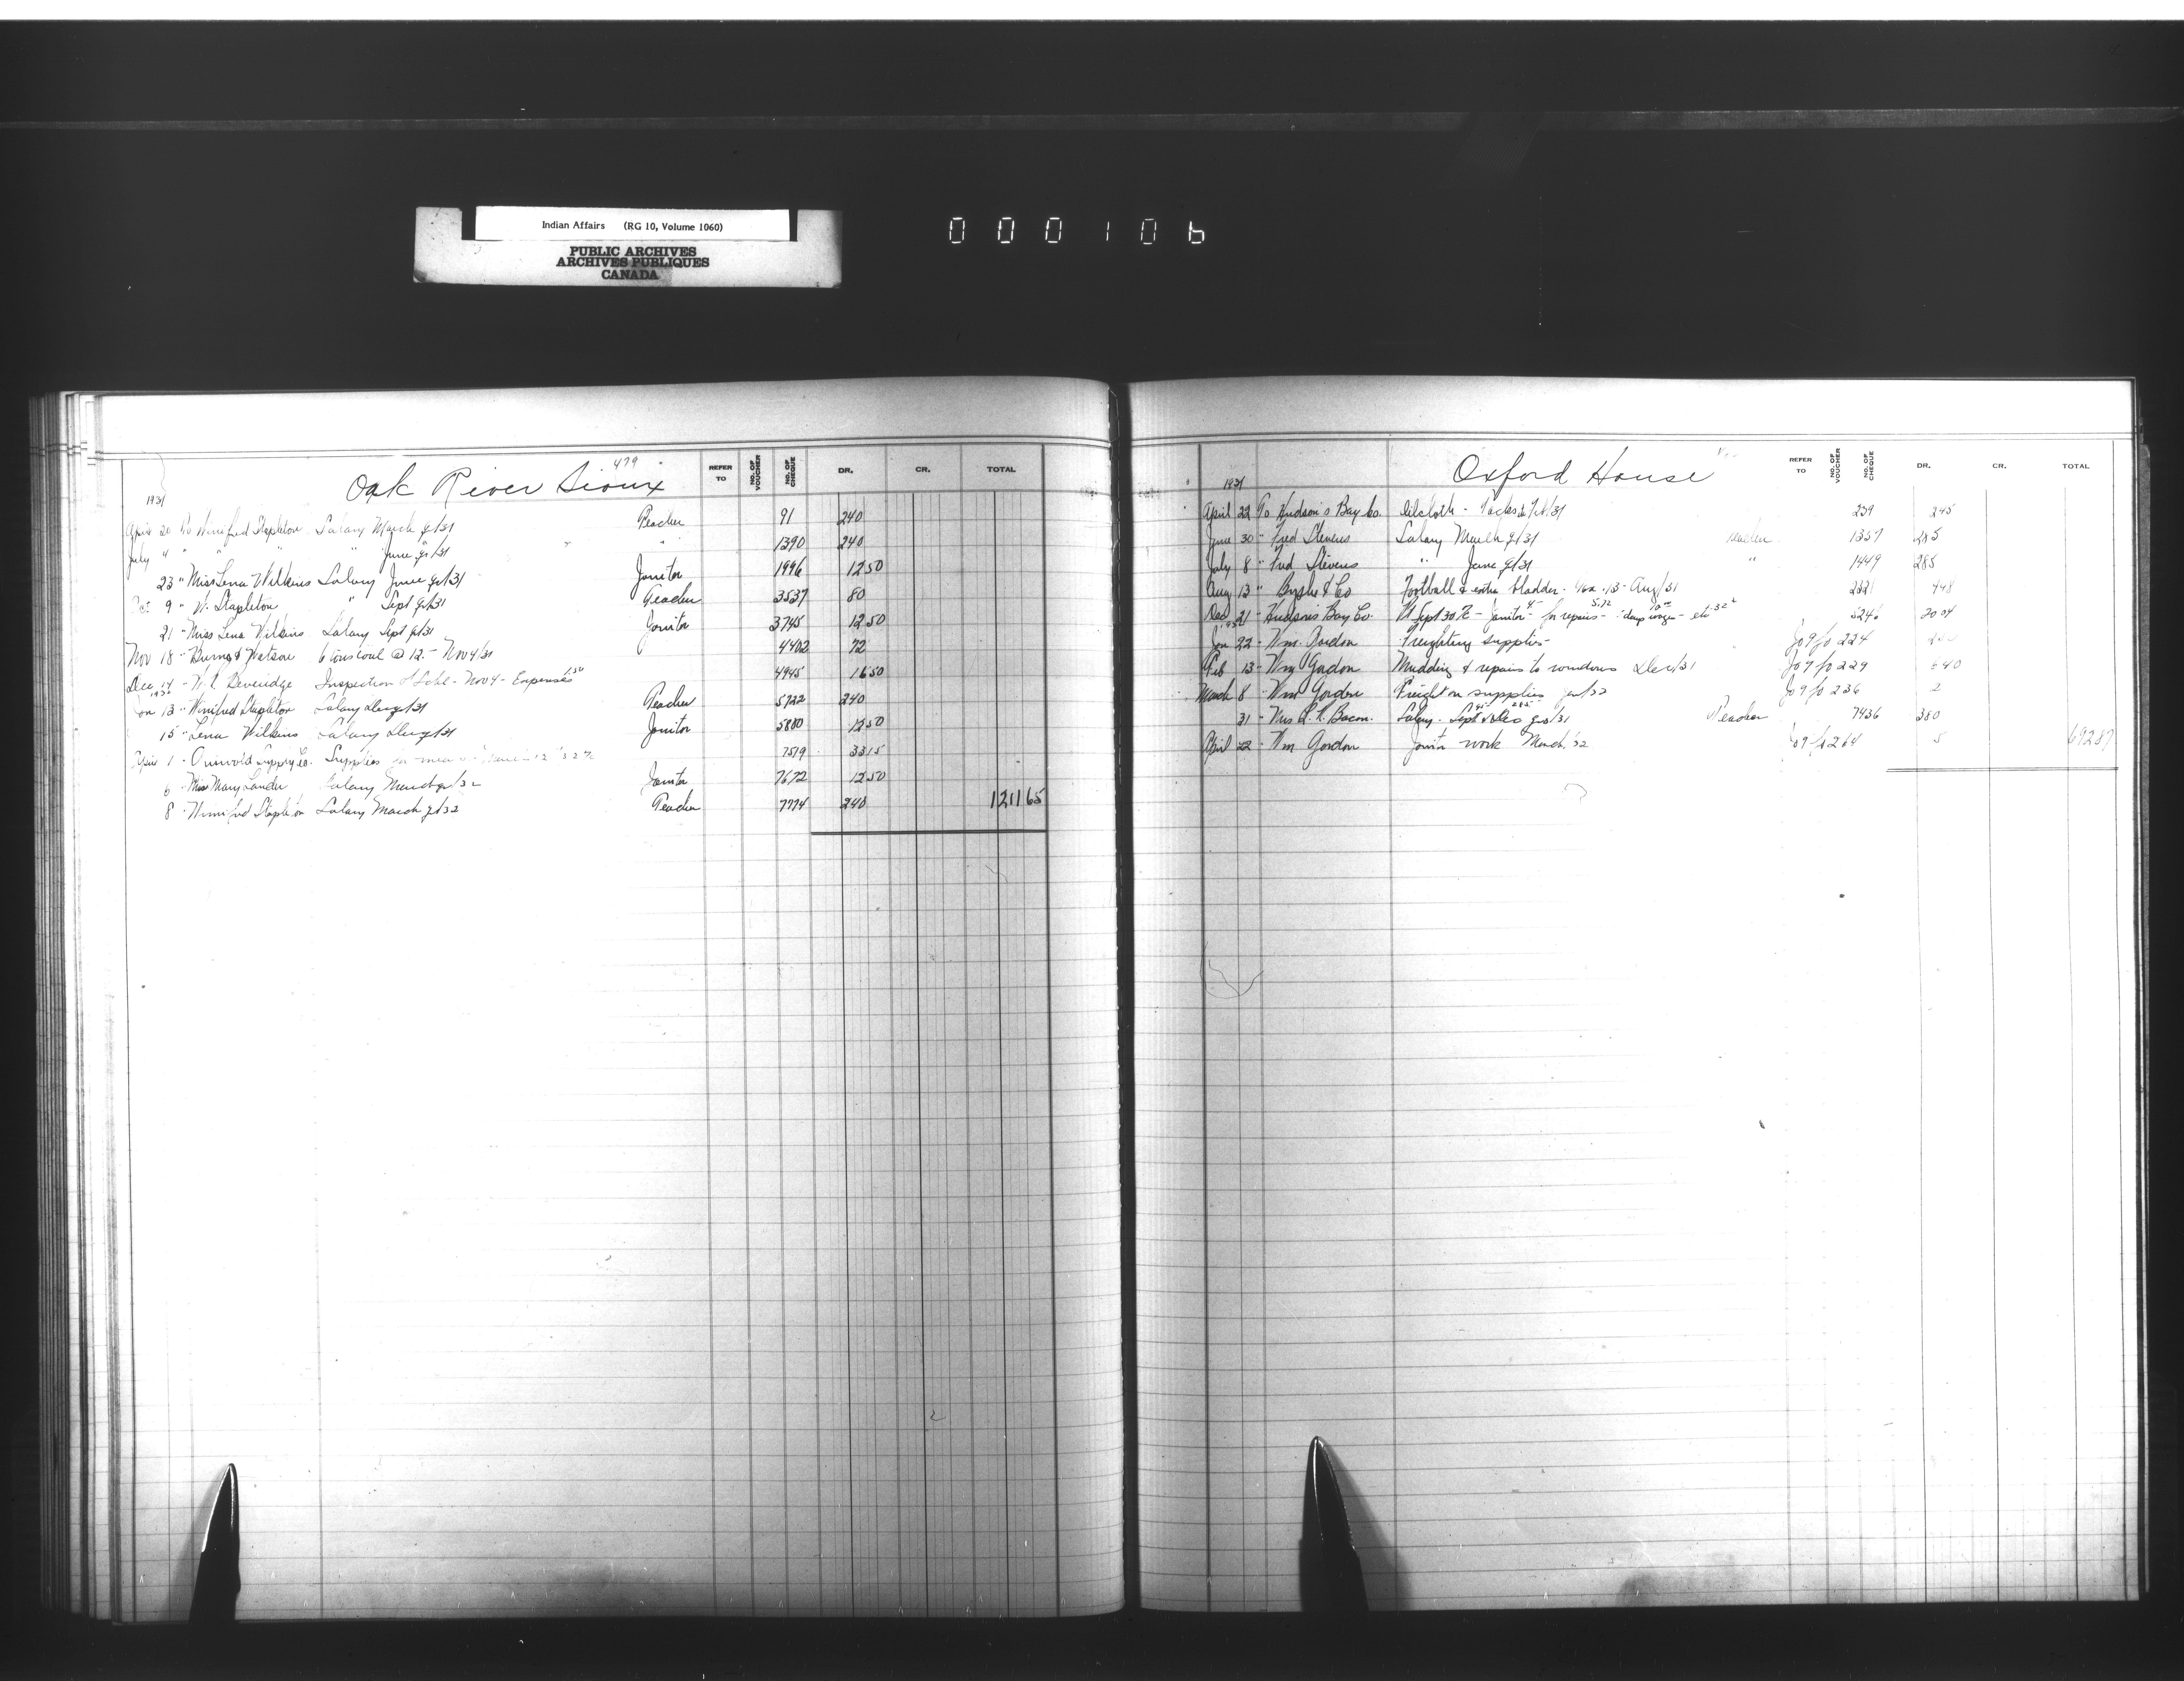 Indian Affairs (RG 10, Volume 1060)
PUBLIC ARCHIVES
ARCHIVES PUBLIQUES
CANADA
000106
479
Oak River Sioux
REFER TO NO. OF VOUCHER NO. OF CHEQUE DR. CR. TOTAL
1931
April 20 To Winifred Stapleton Salary March qr/31 Teacher 91 240
July 4 " " " " June qr/31 " " 1390 240
23 " Miss Lena Wilkins Salary June qr/31 Janitor 1996 12 50
Oct 9 " W. Stapleton " Sept qr/31 Teacher 3537 80
21 - Miss Lena Wilkins Salary Sept qr/31 Janitor 3745 12 50
Nov 18 - Burns & Watson 6 tons coal @ 12. - Nov 4/31 4402 72
Dec 14 - Beveridge Inspection of - Nov 4 - Expenses 4945 16 50
1932
Jan 13 - Winifred Stapleton Salary Dec qr/31 Teacher 5722 240
15 " Lena Wilkins Salary Dec qr/31 Janitor 5880 12 50
April 1 - Griswold Supply Co. Supplies 7519 33 15
6 - Miss Mary Lander Salary March qr/32 Janitor 7672 12 50
8 - Winifred Stapleton Salary March qr/32 Teacher 7774 240 1211 65
Oxford House
REFER TO NO. OF VOUCHER NO. OF CHEQUE DR. CR. TOTAL
1931
April 22 To Hudson's Bay Co. Oilcloth - Tacks 239 2 45
June 30 - Fred Stevens Salary March qr/31 Teacher 1357 285
July 8 " Fred Stevens " June qr/31 " 1449 285
Aug 13 " & Co Football & extra bladder - Aug/31 2221 4 48
Dec 21 - Hudson's Bay Co. Sept 30 - Janitor - for repairs - 5246 20 04
1932
Jan 22 - Wm. Gordon Freighting supplies Jo 9 fo 224
Feb 13 - Wm Gordon Mudding & repairs to windows Dec/31 Jo 9 fo 229 40
March 8 " Wm Gordon Freight on supplies Jan/32 Jo 9 fo 236 2
31 - Mrs Bacon. Salary - Sept & Dec qrs/31 Teacher 7436 380
April 22 - Wm Gordon Janitor work March/32 Jo 9 fo 264 5 692 87